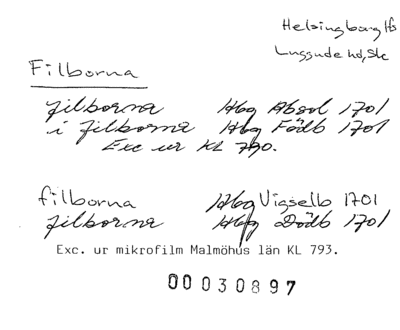 Helsingborg lfs
Luggude hd, Sk
Filborna
filborna Hbg Absol 1701
i filborna Hbg Födb 1701
Exc ur KL 790.
filborna Hbg Vigselb 1701
filborna Hbg Dödb 1701
Exc. ur mikrofilm Malmöhus län KL 793.
00030897